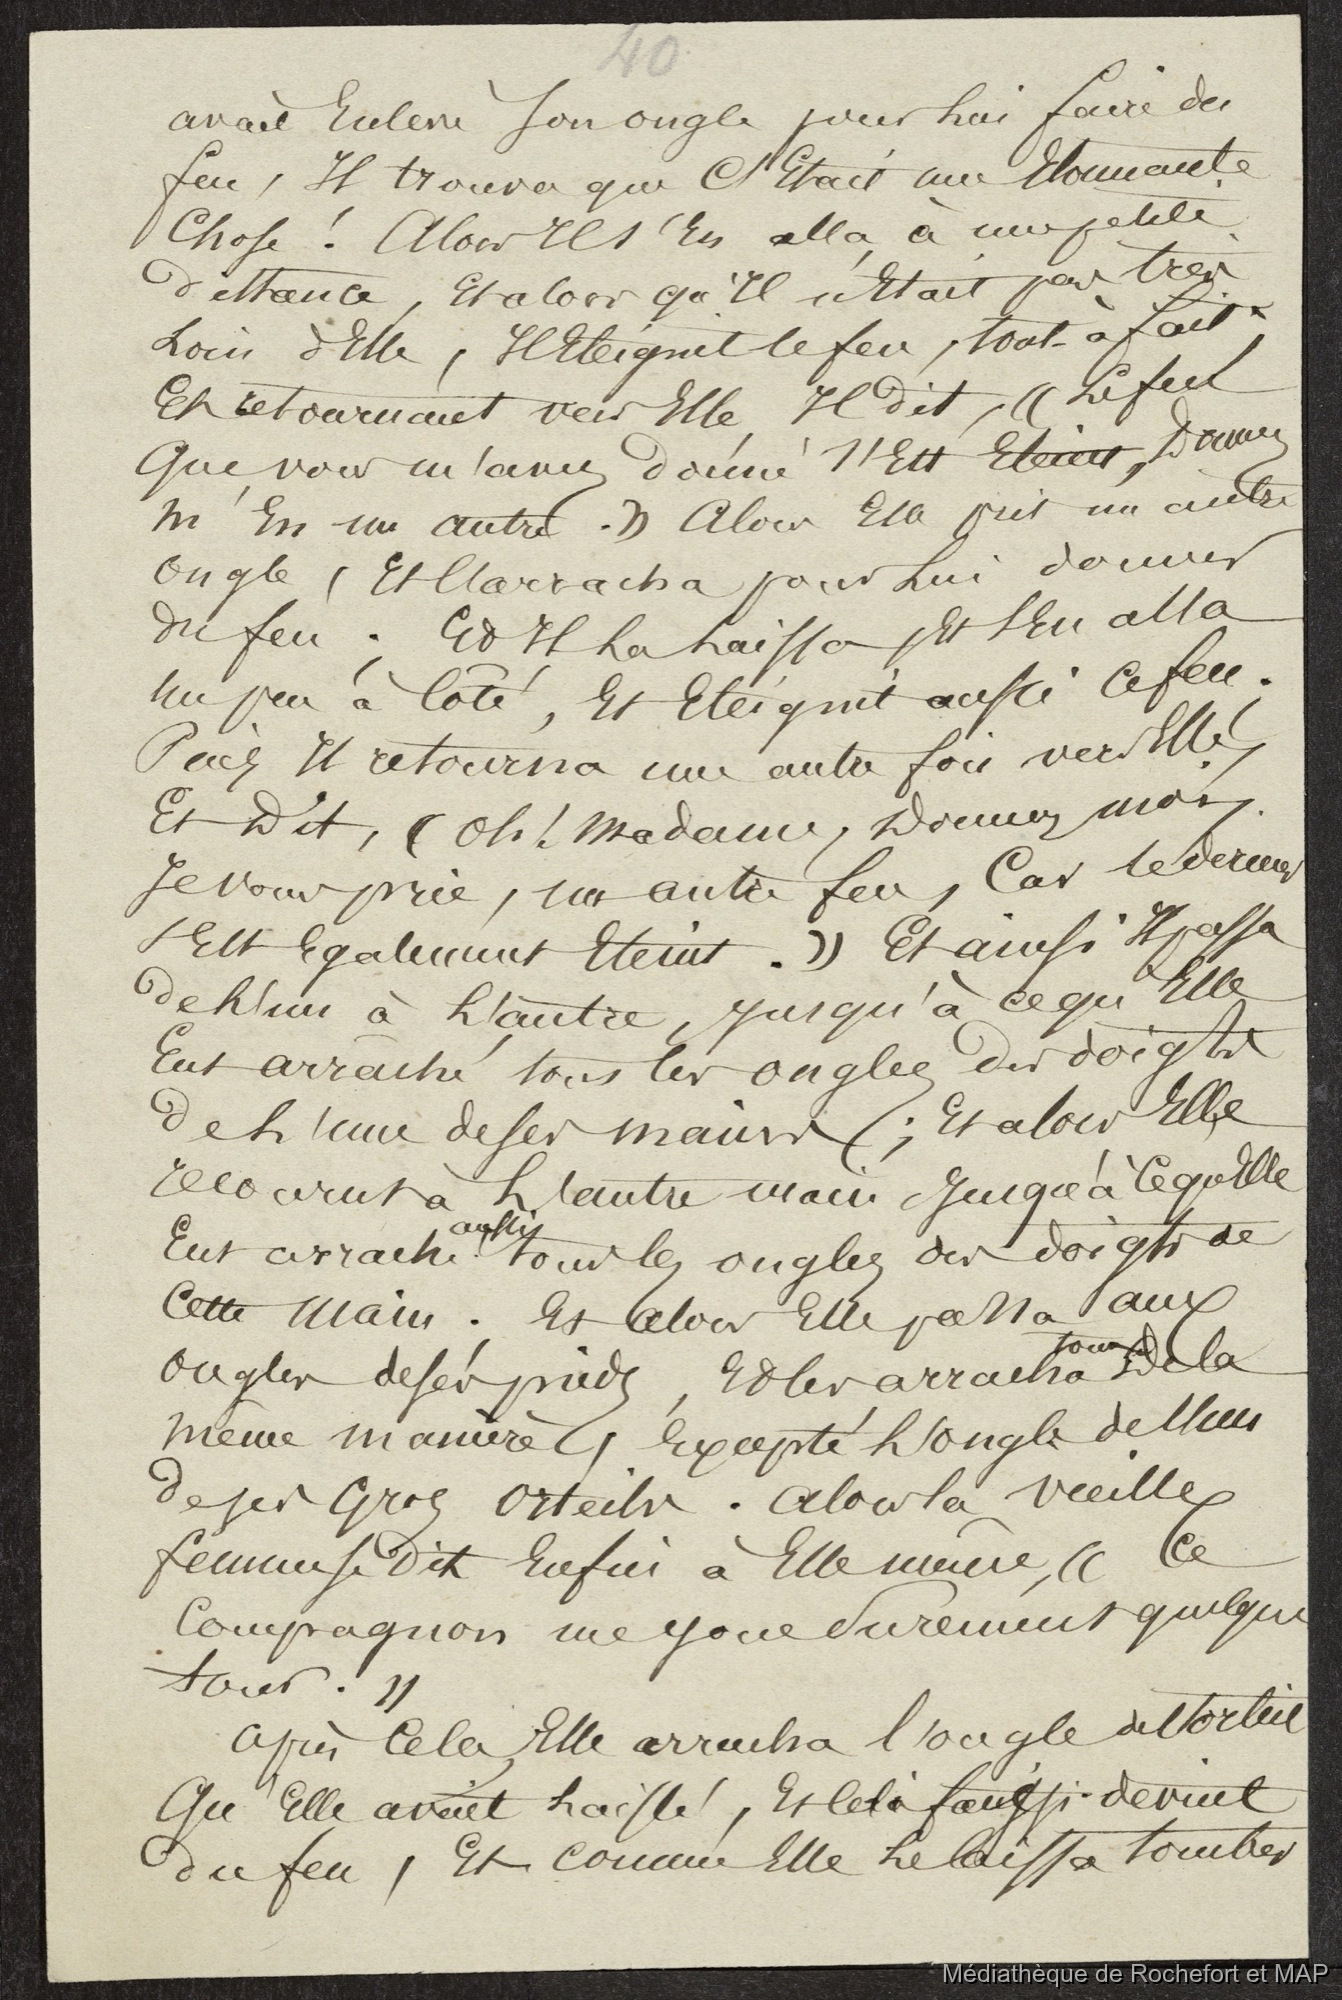 40
avait Enlevé son ongle pour Lui faire du
feu, Il trouva que C'Etait une Etonnante
Chose ! Alors Il s'En alla, à une petite
distance, Et alors qu'Il n'Etait pas très
Loin d'Elle, Il Eteignit le feu, tout-à-fait,
Et retournant vers Elle, Il dit, (( Le feu
Que vous m'avez donné s'Est Eteint, Donnez
m'En un autre. )) Alors Elle prit un autre
ongle, Et L'arracha pour Lui donner
du feu. Ed Il La Laissa, Et s'En alla
un peu à Côté, Et Eteignit aussi Ce feu.
Puis Il retourna une autre fois vers Elle,
Et Dit, ( Oh! Madame, Donnez moi,
Je vous prie, un autre feu, Car le dernier
s'Est Egalement Eteint. )) Et ainsi Il passa
de L'un à L'autre, jusqu'à ce qu'Elle
Eut arraché tous les ongles des doigts
de L'une de ses mains ; Et alors Elle
recourut à L'autre main, Jusqu'à Ce qu'Elle
Eut arraché aussi tous les ongles des doigts de
Cette Main. Et alors Elle passa aux
ongles de ses pieds, Ed les arracha tous De la
même manière, Excepté L'ongle de l'un
de ses Gros Orteils. Alors la vieille
femme se Dit Enfin à Elle même, (( Ce
Compagnon me joue Surement quelque
tour. ))
Après Cela, Elle arracha l'ongle de l'orteil
Qu'Elle avait Laissé, Et Celà aussi devint
du feu, Et comme Elle Le laissa tomber
Médiathèque de Rochefort et MAP